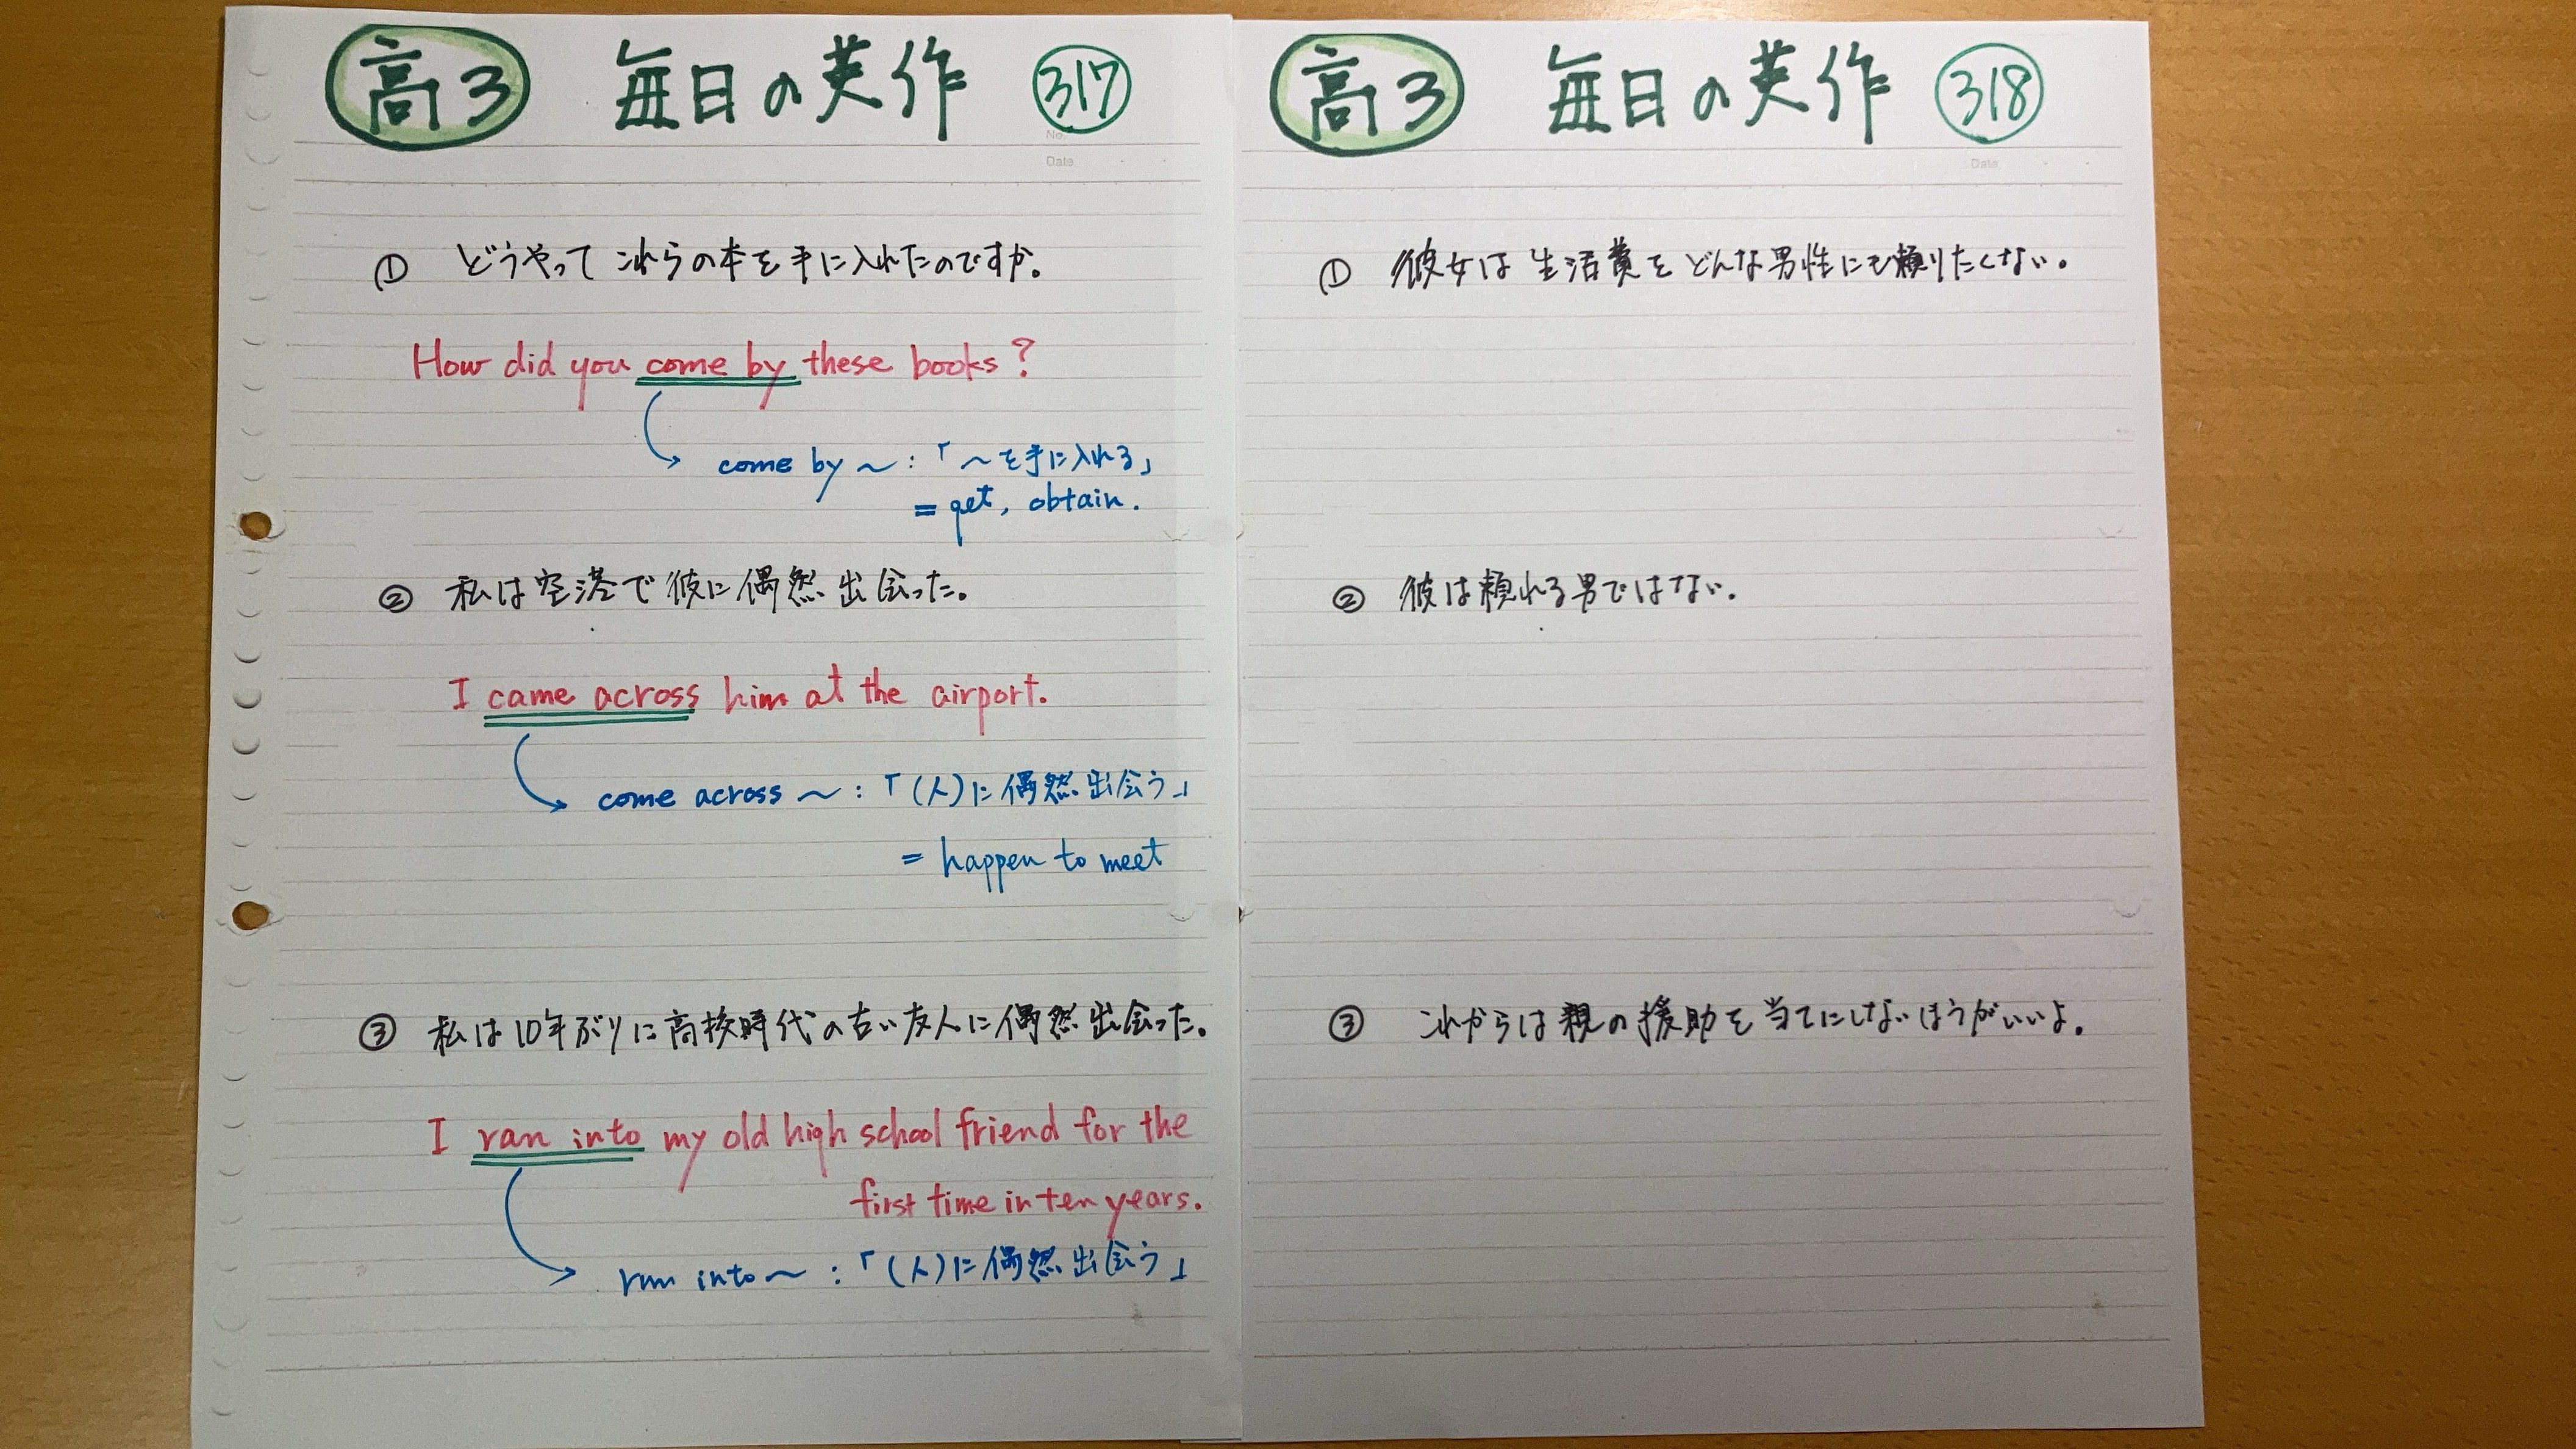 高3 毎日の英作 317
No.
Date
① どうやってこれらの本を手に入れたのですか。
How did you come by these books?
come by ～:「～を手に入れる」
= get, obtain.
② 私は空港で彼に偶然出会った。
I came across him at the airport.
come across ～:「(人)に偶然出会う」
= happen to meet
③ 私は10年ぶりに高校時代の古い友人に偶然出会った。
I ran into my old high school friend for the
first time in ten years.
run into ～:「(人)に偶然出会う」
高3 毎日の英作 318
Date
① 彼女は生活費をどんな男性にも頼りたくない。
② 彼は頼れる男ではない。
③ これからは親の援助を当てにしないほうがいいよ。